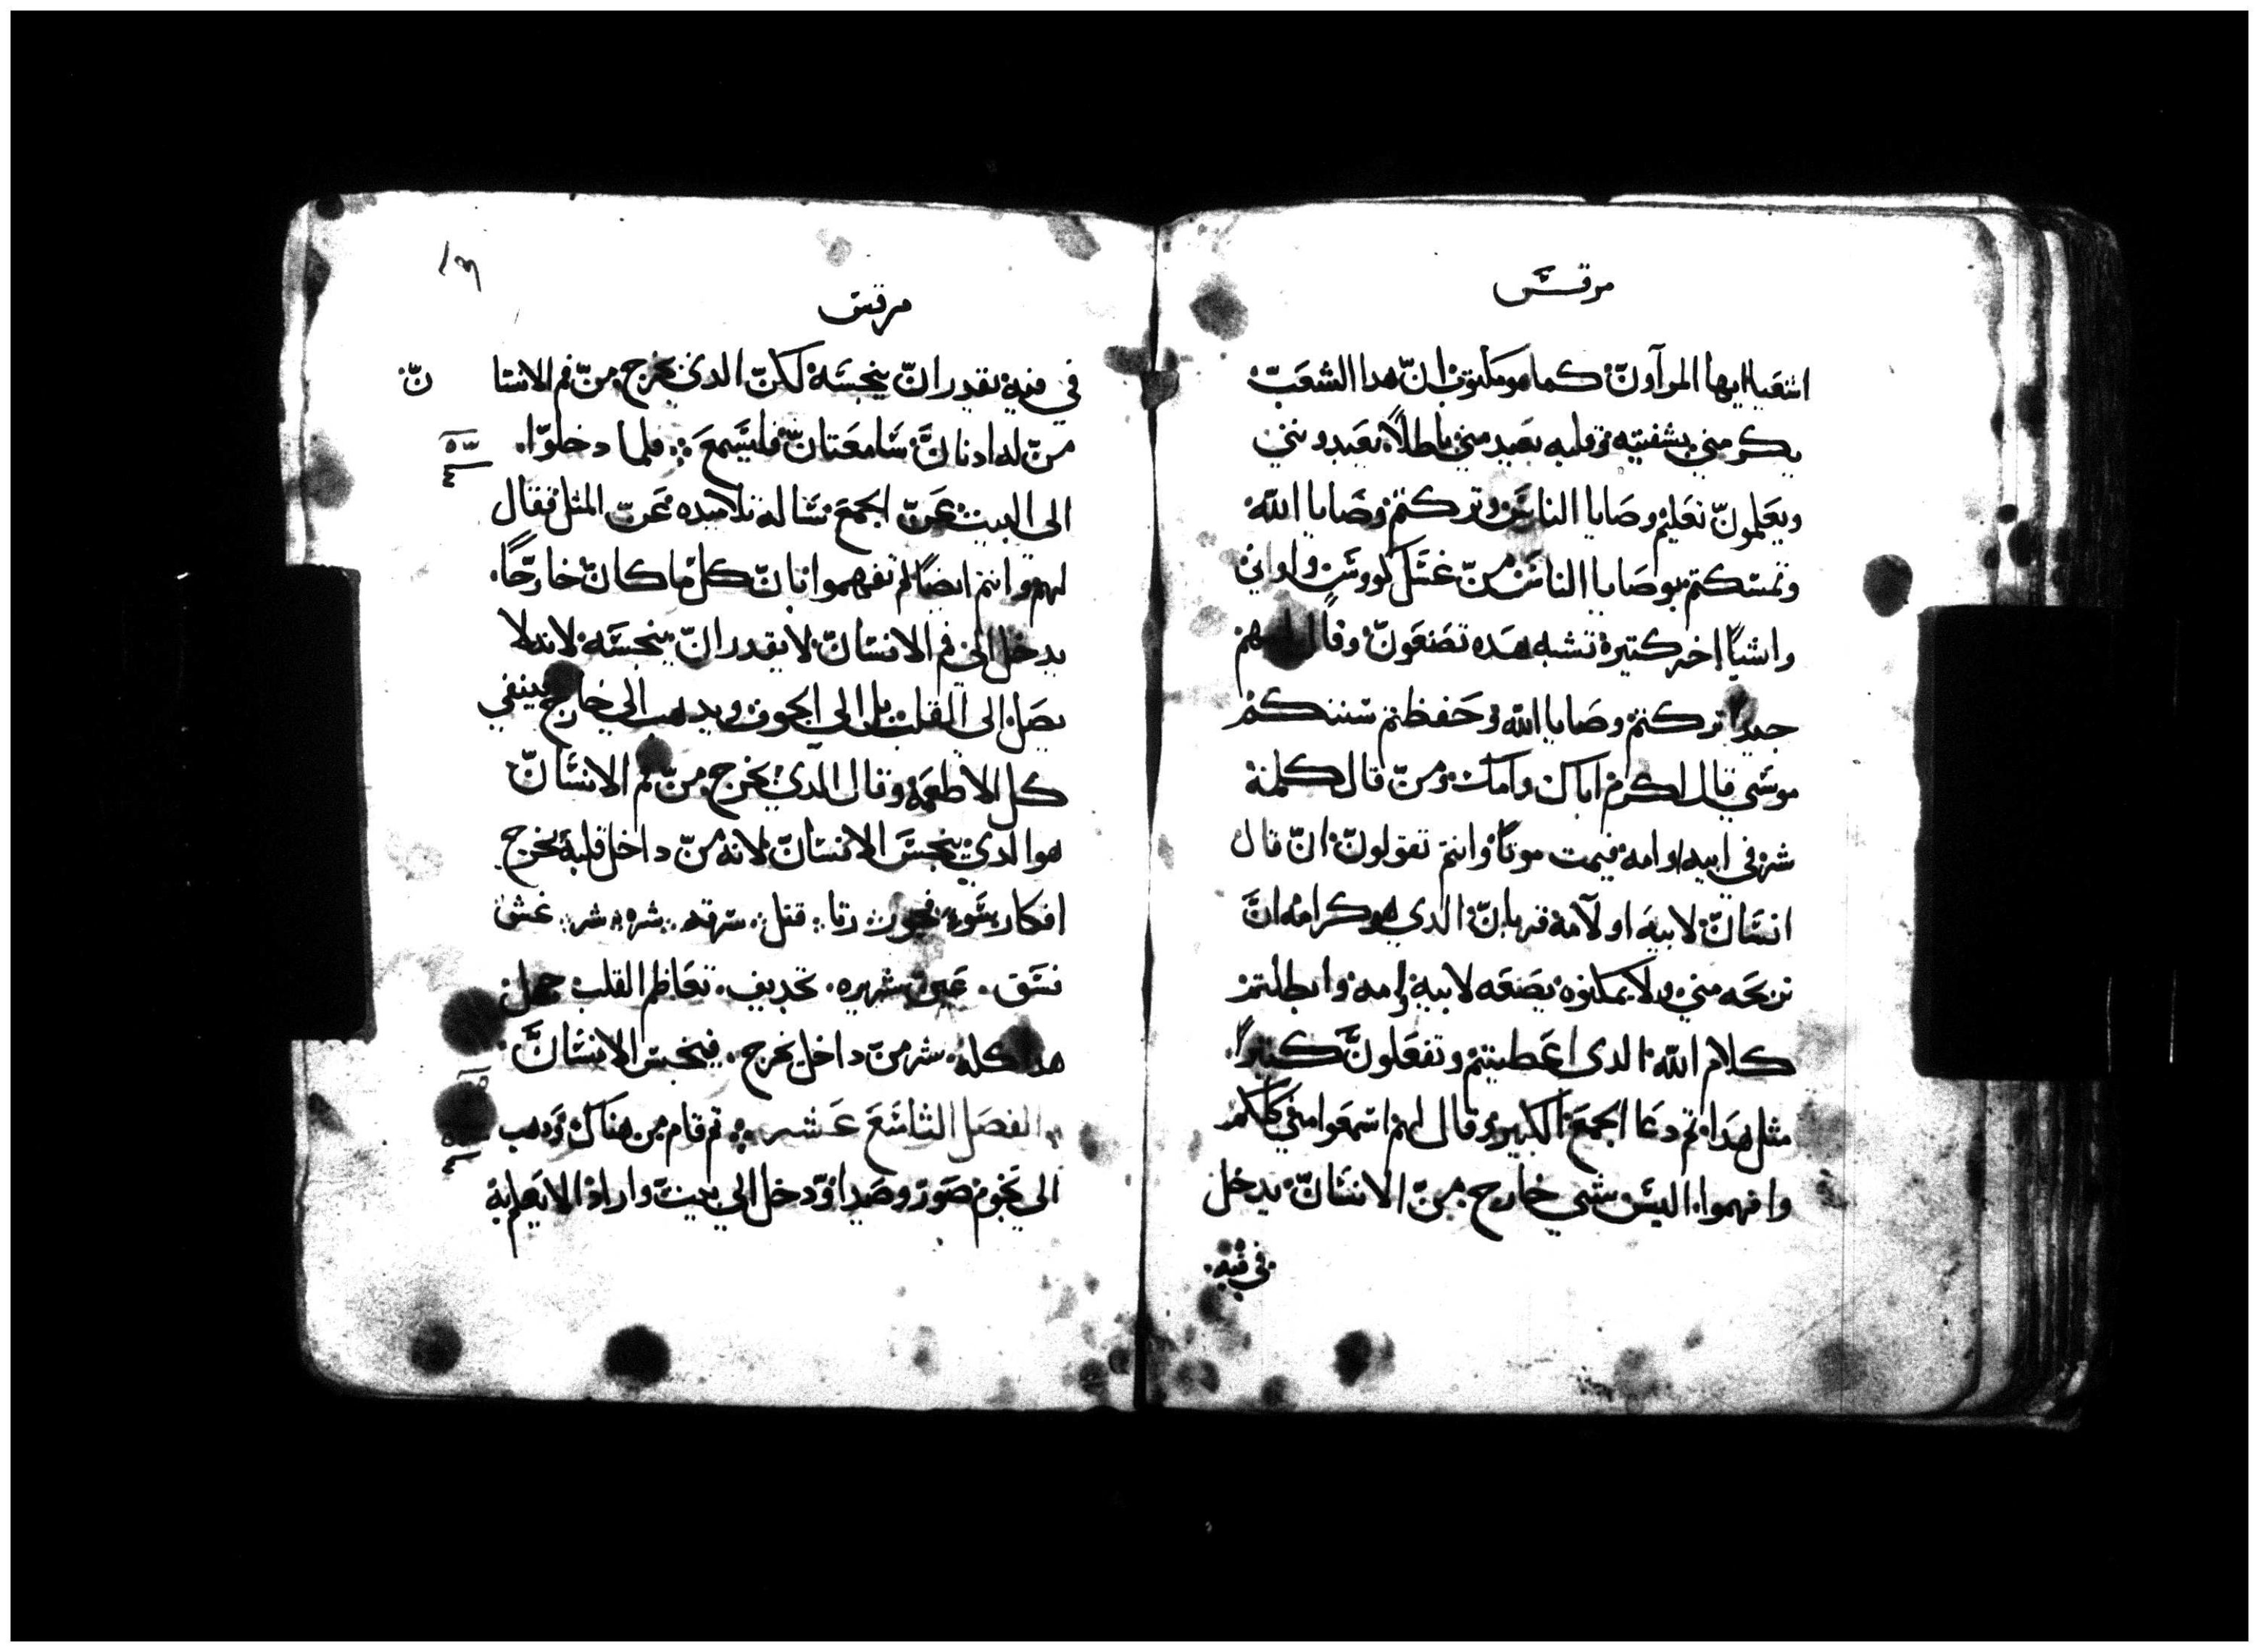 مرقس
اشعيا ايها المرآون كما هو مكتوب ان هدا الشعب
يكرمني بشفتيه وقلبه بعيد مني باطلاً يعبدونني
ويعلمون تعليم وصايا الناس وتركتم وصايا الله
وتمسكتم بوصايا الناس من غسل كووس واواني
واشيا اخر كتيرة تشبه هده تصنعون وقال لهم
جيدا تركتم وصايا الله وحفظتم سننكم
موسي قال اكرم اباك وامك ومن قال كلمة
شر في ابيه او امه فيمت موتًا وانتم تقولون ان قال
انسان لابيه او لامه قربان الدي هو كرامه ان
تربحه مني ولا يمكنوه يصنعه لابيه وامه وابطلتم
كلام الله الدي اعطيتم وتفعلون كتيرًا
مثل هدا تم دعا الجمع الكبير وقال لهم اسمعوا مني كلكم
وافهموا اليس شي خارج من الانسان يدخل
في فيه
مرقس
في فيه يقدر ان ينجسه لكن الدي يخرج من فم الانسان
من له ادنان سامعتان فليسمع فلما دخلوا
الى البيت عن الجمع سالة تلاميده عن المثل فقال
لهم وانتم ايضًا لم تفهموا ان كل ما كان خارجًا
يدخل الى فم الانسان لا يقدر ان ينجسه لانه لا
يصل الى القلب بل الى الجوف ويدهب الي خارج ينقي
كل الاطعمه وقال الدي يخرج من فم الانسان
هو الدي ينجس الانسان لانه من داخل قلبه يخرج
افكار سوء فجور زنا قتل سرقه شره شر غش
فسق عين شريره تجديف تعاظم القلب جهل
هدا كله شر من داخل يخرج فينجس الانسان
الفصل التاسع عشر تم قام من هناك ودهب
الي تخوم صور وصيدا ودخل الي بيت واراد الا يعلم به